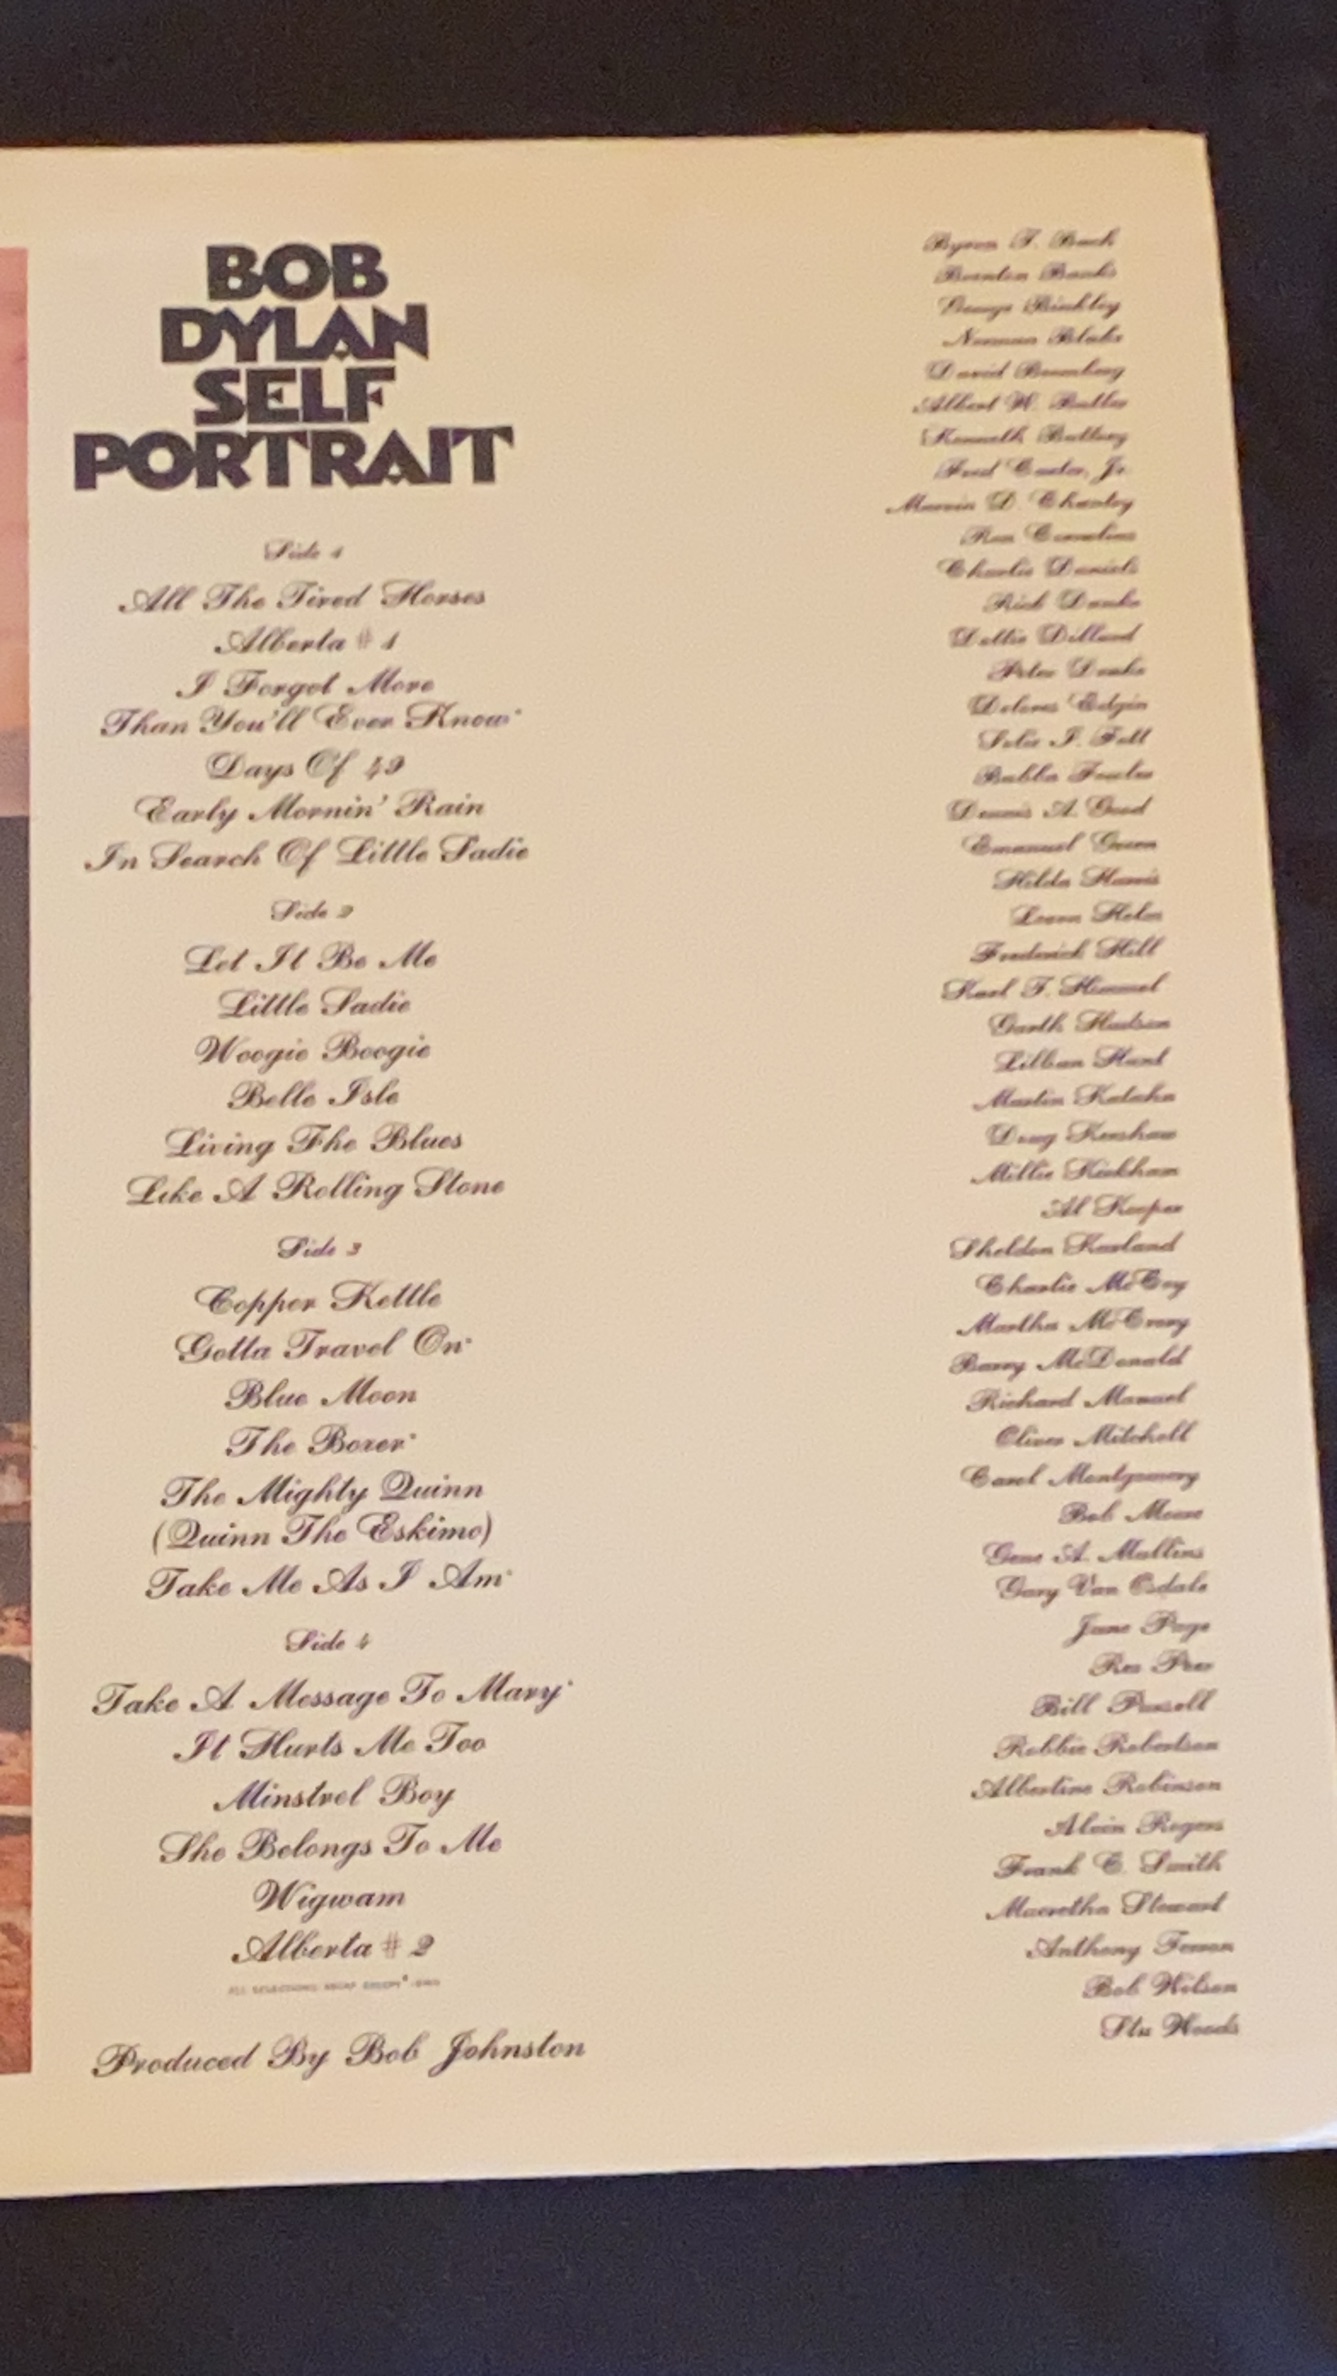 BOB
DYLAN
SELF
PORTRAIT
Side 1
All The Tired Horses
Alberta # 1
I Forgot More
Than You'll Ever Know*
Days Of 49
Early Mornin' Rain
In Search Of Little Sadie
Side 2
Let It Be Me
Little Sadie
Woogie Boogie
Belle Isle
Living The Blues
Like A Rolling Stone
Side 3
Copper Kettle
Gotta Travel On*
Blue Moon
The Boxer*
The Mighty Quinn
(Quinn The Eskimo)
Take Me As I Am*
Side 4
Take A Message To Mary*
It Hurts Me Too
Minstrel Boy
She Belongs To Me
Wigwam
Alberta # 2
ALL SELECTIONS ASCAP EXCEPT * (BMI)
Produced By Bob Johnston
Byron T. Bach
Brenton Banks
George Binkley
Norman Blake
David Bromberg
Albert W. Butler
Kenneth Buttrey
Fred Carter, Jr.
Marvin D. Chantry
Ron Cornelius
Charlie Daniels
Rick Danko
Dottie Dillard
Peter Drake
Dolores Edgin
Solie I. Fott
Bubba Fowler
Dennis A. Good
Emanuel Green
Hilda Harris
Levon Helm
Frederick Hill
Karl T. Himmel
Garth Hudson
Lillian Hunt
Martin Katahn
Doug Kershaw
Millie Kirkham
Al Kooper
Sheldon Kurland
Charlie McCoy
Martha McCrory
Barry McDonald
Richard Manuel
Oliver Mitchell
Carol Montgomery
Bob Moore
Gene A. Mullins
Gary Van Osdale
June Page
Rex Peer
Bill Pursell
Robbie Robertson
Albertine Robinson
Alvin Rogers
Frank C. Smith
Maeretha Stewart
Anthony Terran
Bob Wilson
Stu Woods